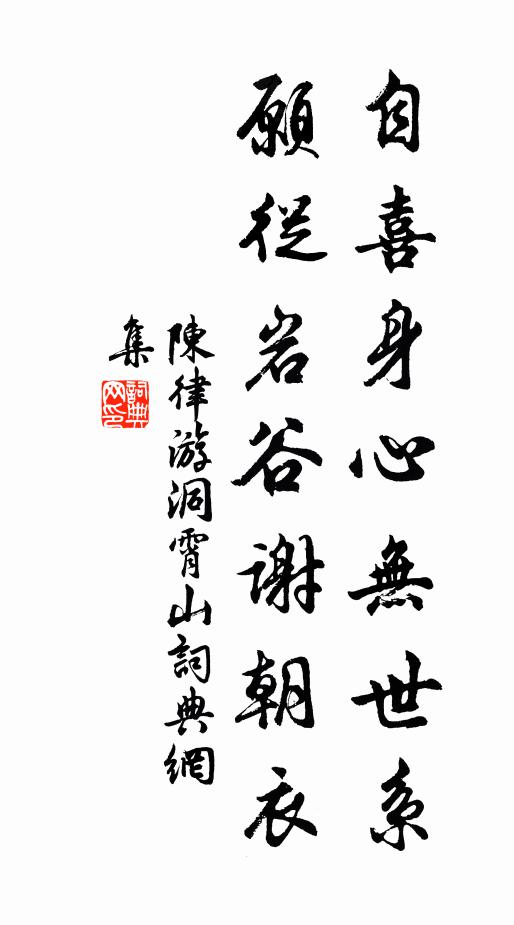 自喜身心無世系
願從岩谷謝朝衣
陳律游洞霄山詞典網
集
詞典
网印